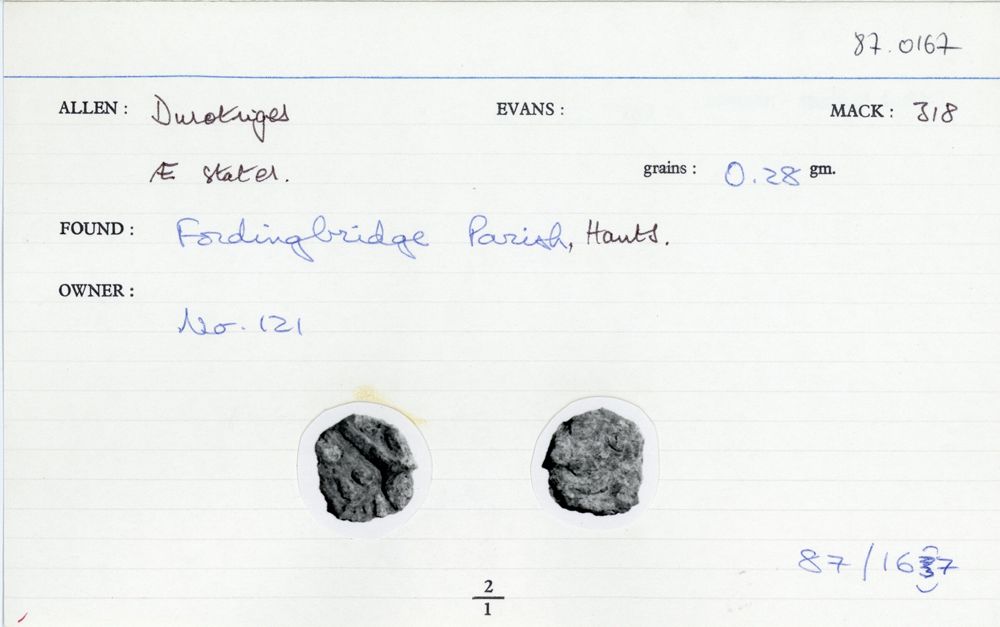 87.0167
ALLEN : Durotriges EVANS : MACK : 318
Æ stater. grains : 0.28 gm.
FOUND : Fordingbridge Parish, Hants.
OWNER :
No. 121
87/167
2
1